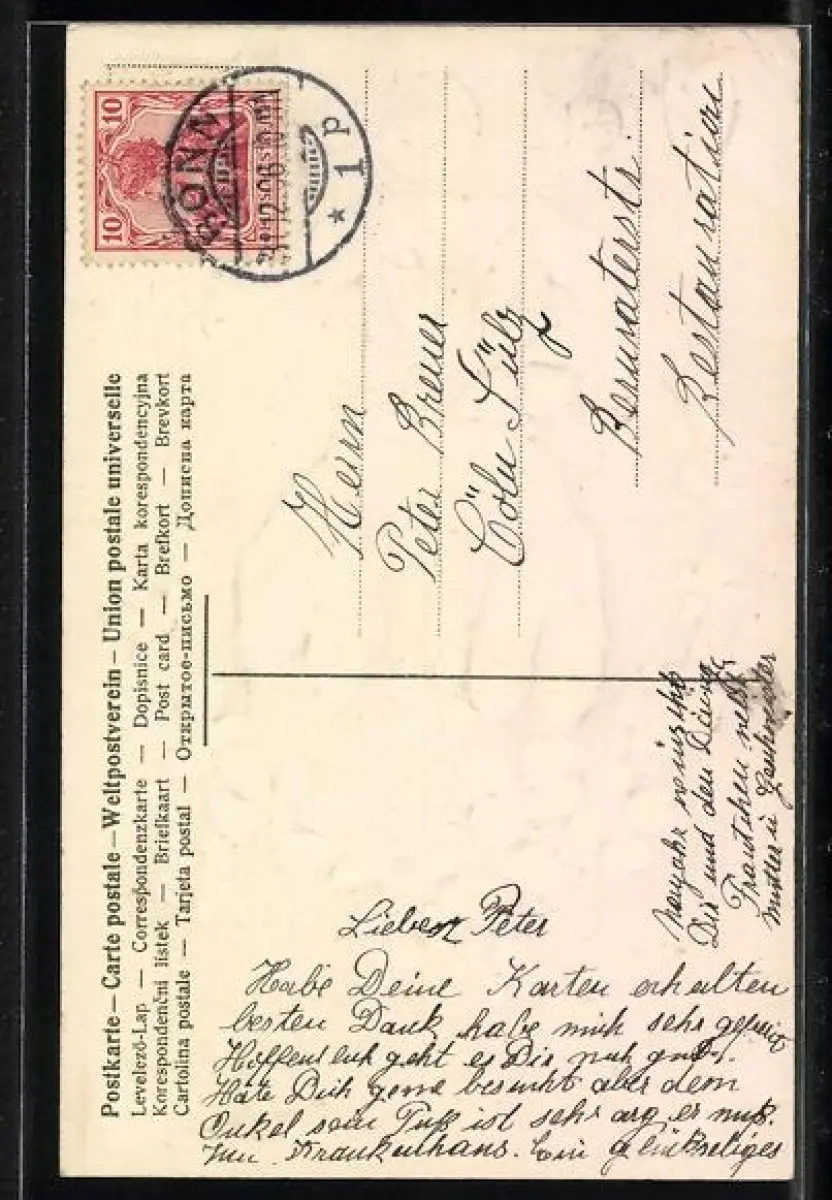 Postkarte – Carte postale – Weltpostverein – Union postale universelle
Levelező-Lap — Correspondenzkarte — Dopisnice — Karta korespondencyjna
Korespondenční lístek — Briefkaart — Post card — Brefkort — Brevkort
Cartolina postale — Tarjeta postal — Открытое-письмо — Дописна карта
10 10
BONN
* 1 p
Herrn
Peter Breuer
Cöln Sülz
Restauration
Lieber Peter
Habe Deine Karten erhalten
besten Dank habe mich sehr gefreut
Hoffentlich geht es Dir noch gut.
Hate Dich gerne besucht aber dem
Onkel sein Fuß ist sehr arg er muß
Im Krankenhaus. Ein glückseliges
Neujahr wünscht
Dir und den Deinen
Trautchen nebst
Mutter u Geschwister